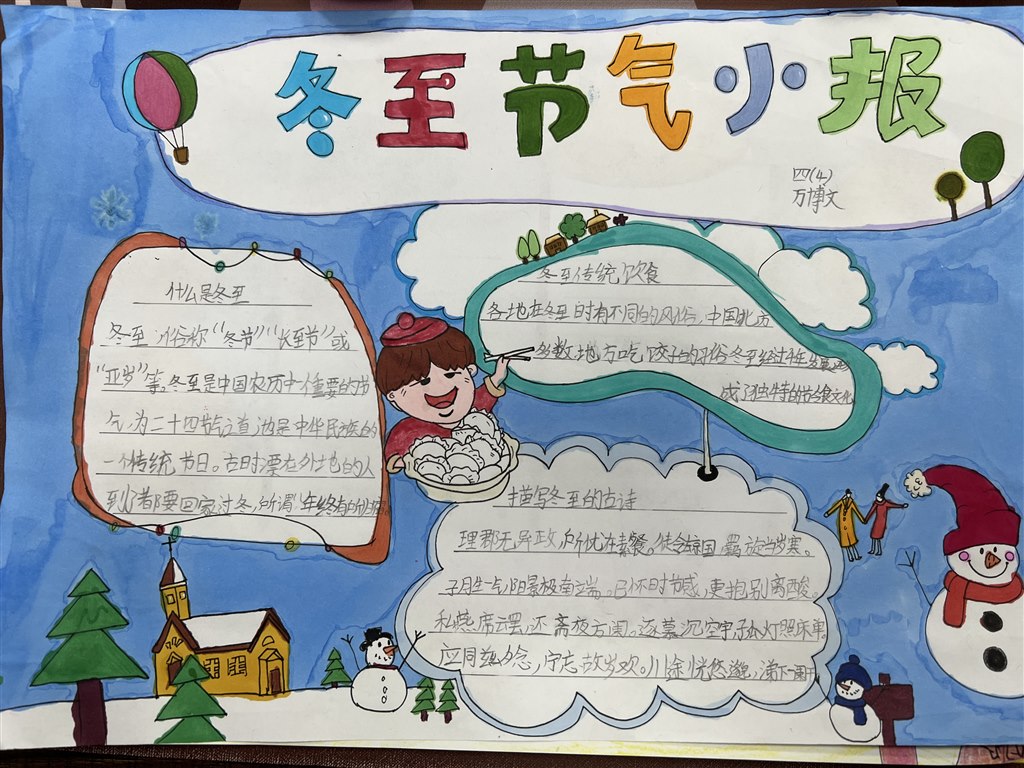 冬至节气小报
四(4)
万博文
什么是冬至
冬至,俗称“冬节”“长至节”或
“亚岁”等。冬至是中国农历中一个重要的节
气,为二十四节气之首,也是中华民族的
一个传统节日。古时漂在外地的人
到了都要回家过冬,所谓“年终有所归宿
冬至传统饮食
各地在冬至时有不同的风俗,中国北方
多数地方吃饺子的习俗,冬至经过
成了独特的节令食文化
描写冬至的古诗
理郡无异政,所忧在素餐。徒令去国 羁旅当岁寒。
子月生一气,阳景极南端。已怀时节感,更抱别离酸。
私燕席云罢,还斋夜方阑。邃幕沉空宇,孤灯照床单。
应同兹夕念,宁忘故岁欢。川途恍悠邈,涕下一阑干